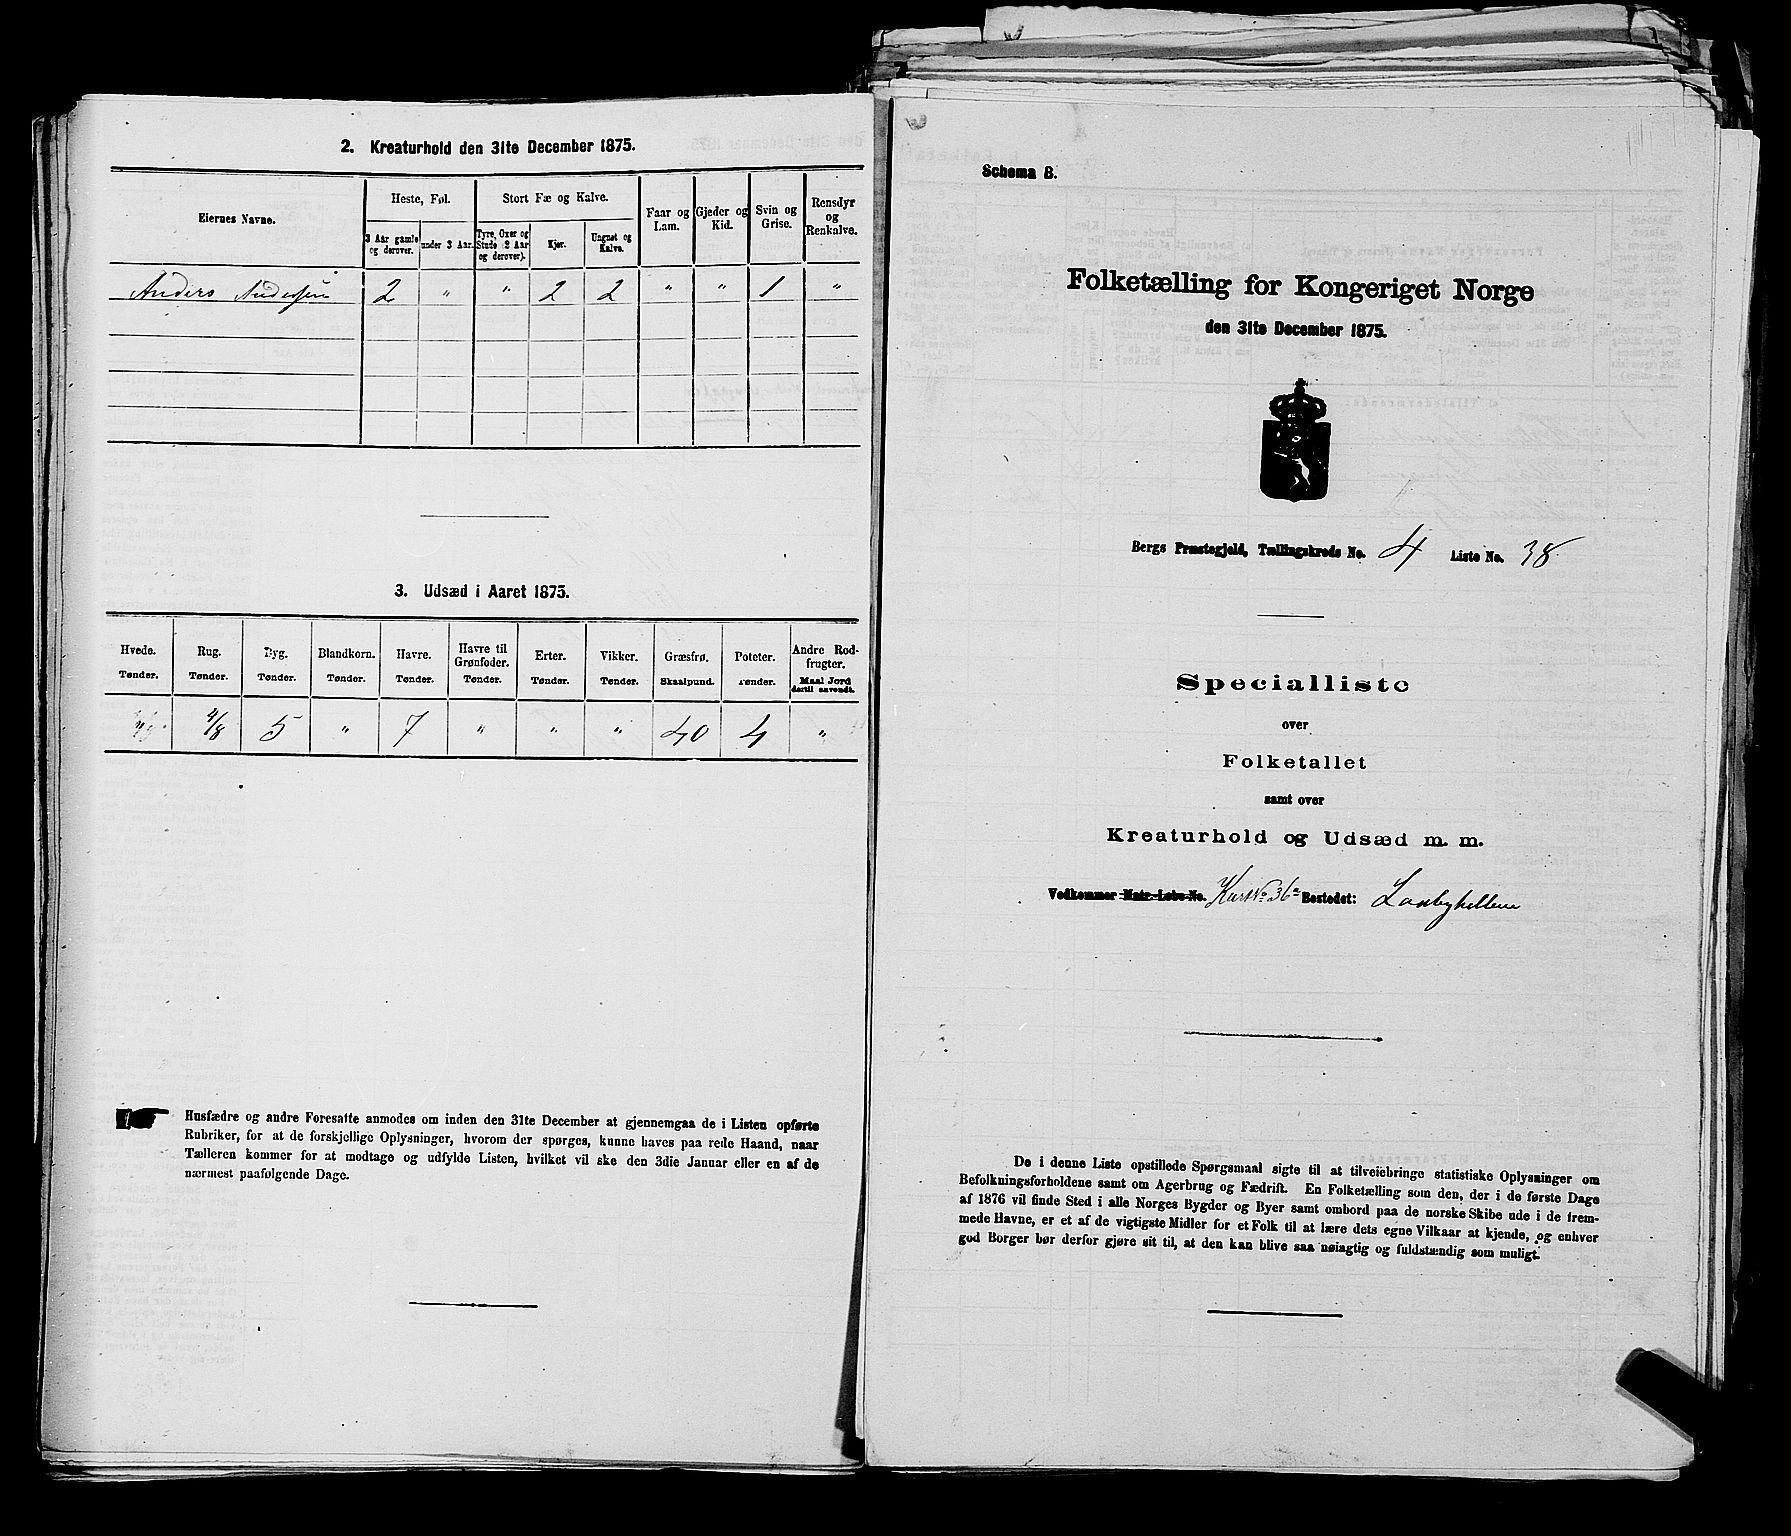 2. Kreaturhold den 31te December 1875.
Eiernes Navne.
Heste, Føl.
Stort Fæ og Kalve.
Faar og Lam.
Gjeder og Kid.
Svin og Grise.
Rensdyr og Renkalve.
3 Aar gamle og derover.
under 3 Aar.
Tyre, Oxer og Stude (2 Aar og derover).
Kjør.
Ungnøt og Kalve.
Anders Andersen 2 " " 2 2 " " 1 "
3. Udsæd i Aaret 1875.
Hvede. Rug. Byg. Blandkorn. Havre. Havre til Grønfoder. Erter. Vikker. Græsfrø. Poteter. Andre Rodfrugter.
Tønder. Tønder. Tønder. Tønder. Tønder. Tønder. Tønder. Tønder. Skaalpund. Tønder. Maal Jord dertil anvendt.
4/8 5 " 7 " " " 40 4 "
Husfædre og andre Foresatte anmodes om inden den 31te December at gjennemgaa de i Listen opførte
Rubriker, for at de forskjellige Oplysninger, hvorom der spørges, kunne haves paa rede Haand, naar
Tælleren kommer for at modtage og udfylde Listen, hvilket vil ske den 3die Januar eller en af de
nærmest paafølgende Dage.
Schema B.
Folketælling for Kongeriget Norge
den 31te December 1875.
Bergs Præstegjeld, Tællingskreds No. 4 Liste No. 38
Specialliste
over
Folketallet
samt over
Kreaturhold og Udsæd m. m.
Vedkommer Matr.-Løbe-No. 36a Bostedet:
De i denne Liste opstillede Spørgsmaal sigte til at tilveiebringe statistiske Oplysninger om
Befolkningsforholdene samt om Agerbrug og Fædrift. En Folketælling som den, der i de første Dage
af 1876 vil finde Sted i alle Norges Bygder og Byer samt ombord paa de norske Skibe ude i de frem-
mede Havne, er et af de vigtigste Midler for et Folk til at lære dets egne Vilkaar at kjende, og enhver
god Borger bør derfor gjøre sit til, at den kan blive saa nøiagtig og fuldstændig som muligt.